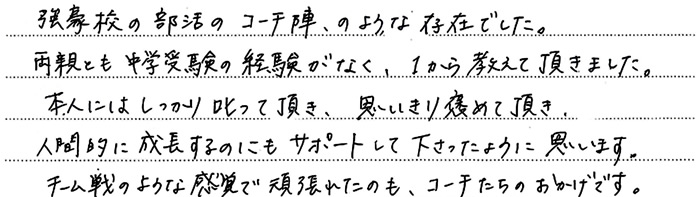 強豪校の部活のコーチ陣、のような存在でした。
両親とも中学受験の経験がなく、1から教えて頂きました。
本人にはしっかり叱って頂き、思いきり褒めて頂き、
人間的に成長するのにもサポートして下さったように思います。
チーム戦のような感覚で頑張れたのも、コーチたちのおかげです。